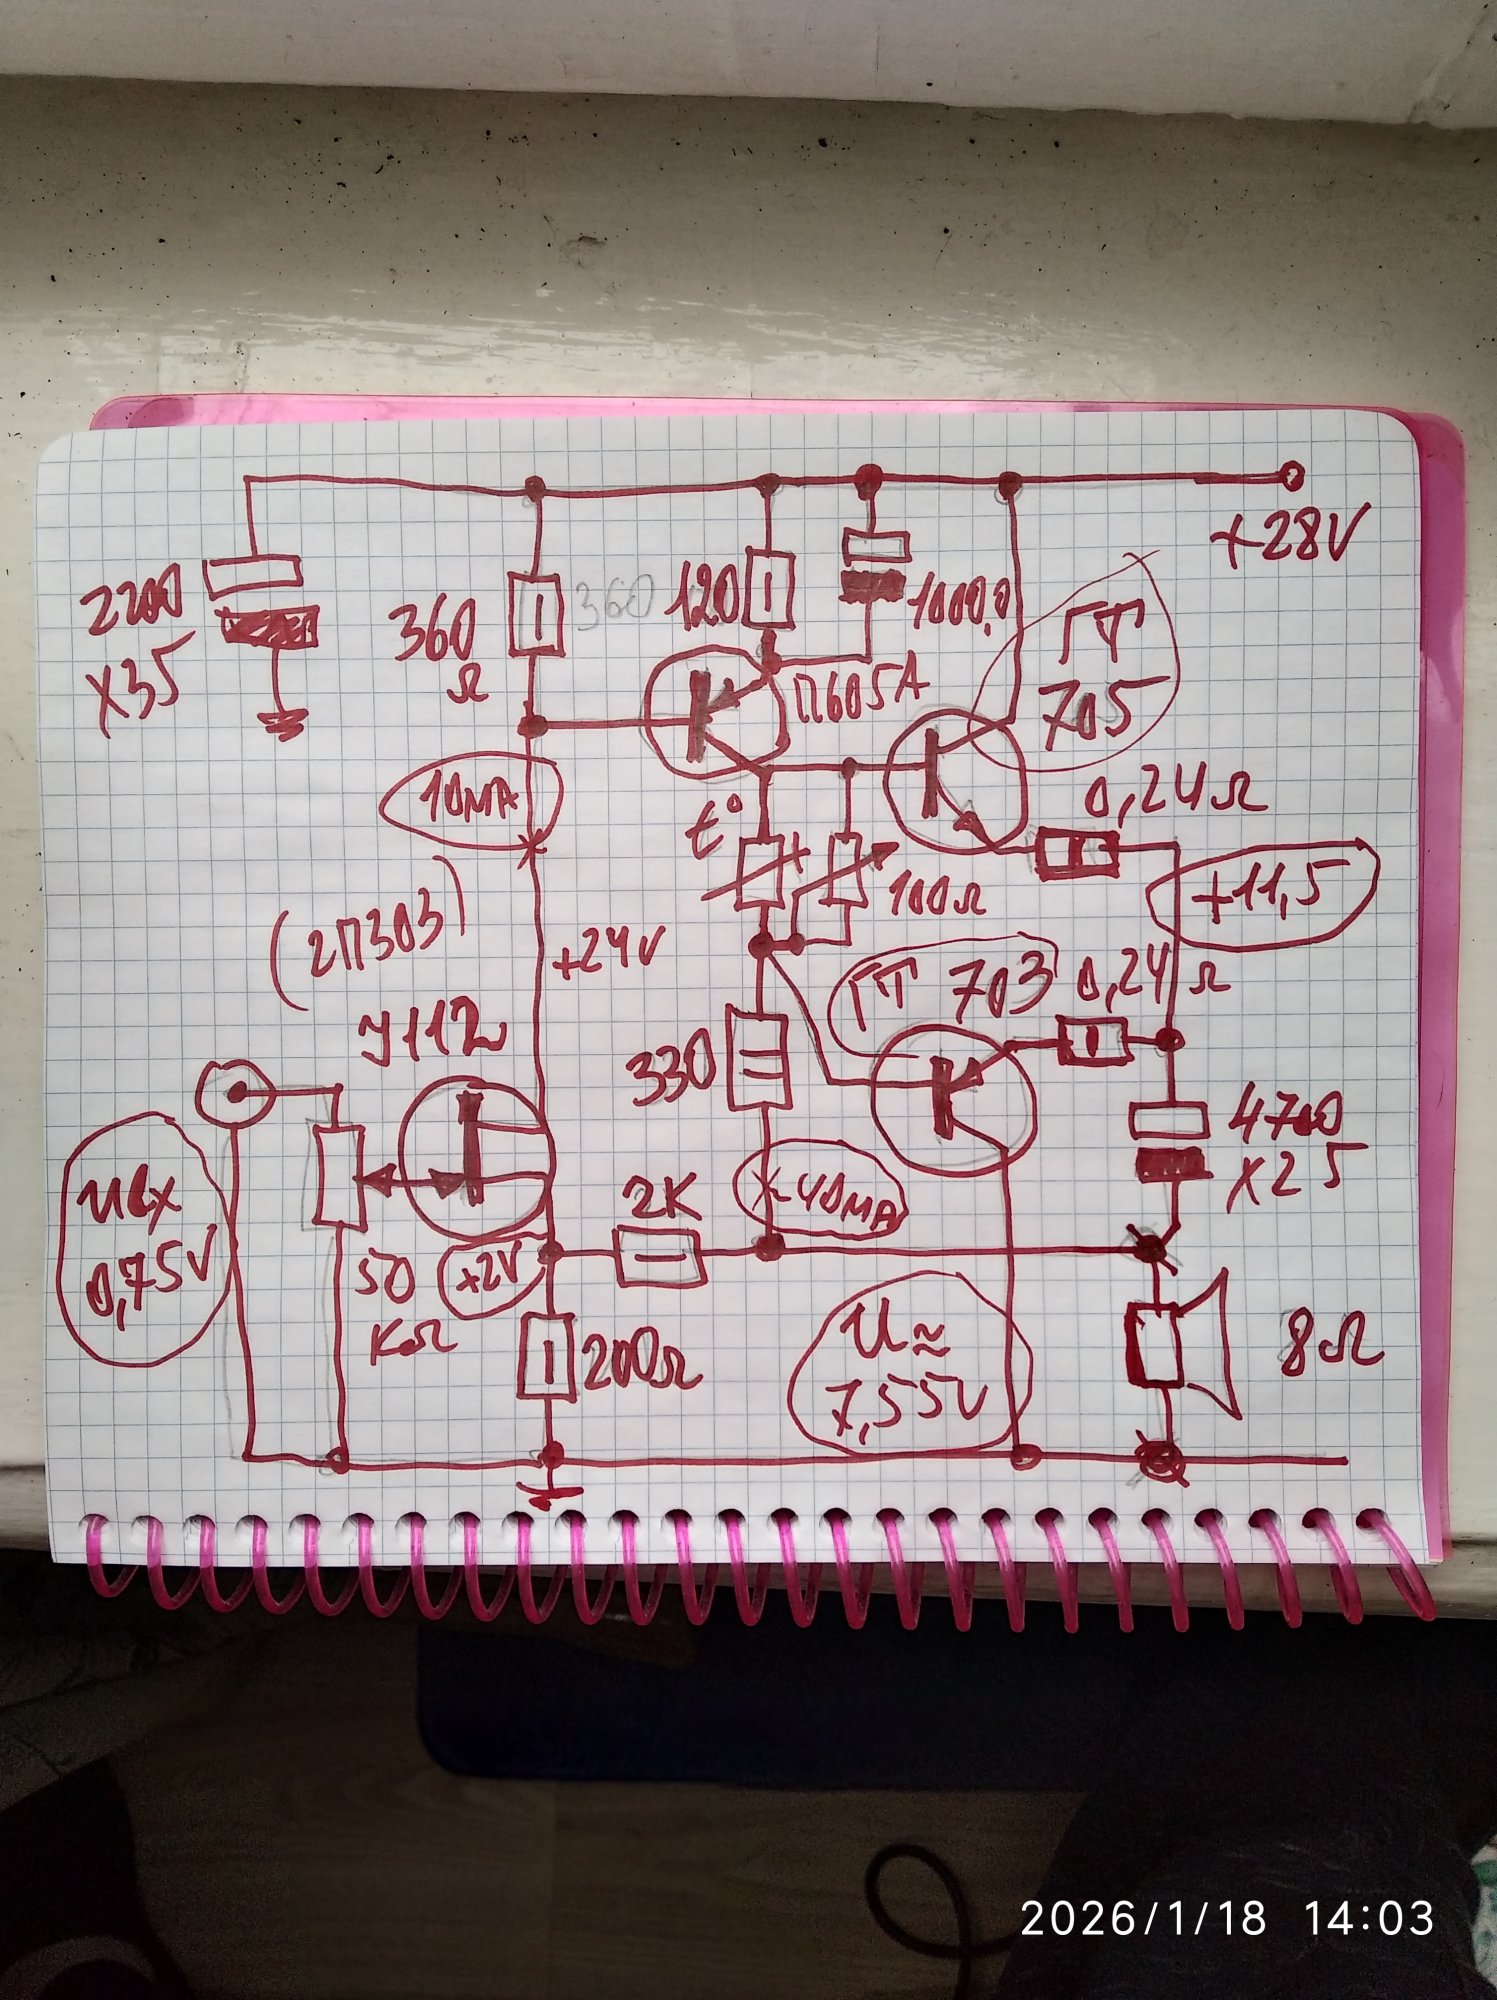 +28V
2200
х35
360
Ω
360
120
1000,0
ГТ
705
П605А
10мА
t°
100Ω
0,24Ω
+11,5
(2П303)
+24V
У112
ГТ 703
0,24 Ω
330
Uвх
0,75V
50
КΩ
+2V
2К
40мА
4700
х25
200Ω
U≈
7,55V
8Ω
2026/1/18 14:03